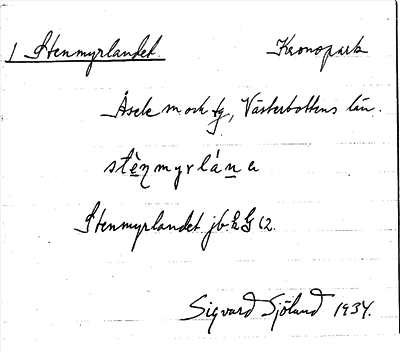 1 Stenmyrlandet. Kronopark
Åsele m och tg, Västerbottens län.
stèŋmyrlánɐ
Stenmyrlandet jb. k G 62.
Sigvard Sjölund 1934.